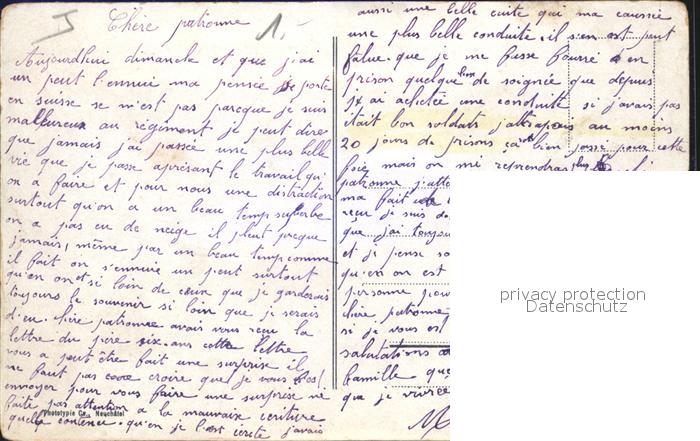 Chère patronne
Aujourdhui dimanche et que j'ai
un peut l'ennui ma pensée se porte
en suisse se n'est pas parceque je suis
malheureux au régiment je peut dire
que jamais j'ai passée une plus belle
vie que je passe aprésant le travail qui
on a faire et pour nous une distraction
surtout qu'on a un beau temp superbe
on a pas eu de neige il pleut presque
jamais, même par un beau temp comme
il fait on s'ennuie un peut surtout
qu'on est si loin de ceux que je garderais
toujours le souvenir si loin que je serais
d'eu. chère patronne avais vous reçu la
lettre du père cette lettre
vous a peut être fait une surprise il
ne faut pas croire que je vous l'es
envoyer pour vous faire une surprise ne
faite pas attention a la mauvaise écriture
quelle contenue. qu'en je l'est écrite j'avais
Phototypie Co., Neuchâtel
aussi une belle cuite qui ma caussée
une plus belle conduite. il s'en est peut
falue que je me fasse fourré en
prison quelque de soignée que depuis
j'ai achetée une conduite si j'avais pas
était bon soldats j'attrapais au moins
20 jours de prisons bien passi pour cette
fois mais on mi reprendras plus
patronne j'atte
ma fait de
reçu je suis de
que j'ai toujou
et je pense so
qu'on on est
personne pou
chère patronne
si je vous es
salutations a
famille que
que je vivrai
1.-
privacy protection
Datenschutz